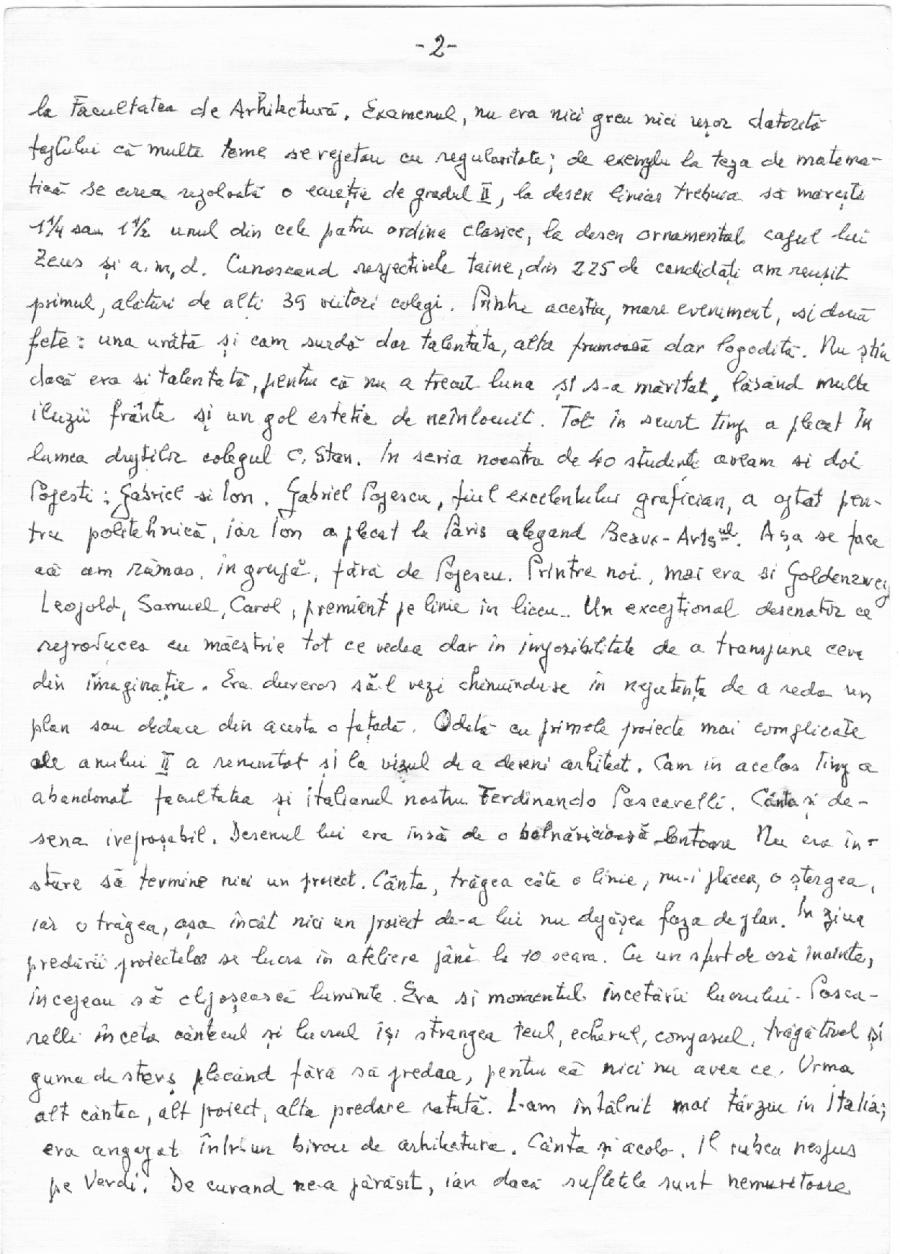 -2-
la Facultatea de Arhitectură. Examenul, nu era nici greu nici ușor datorită
faptului că multe teme se repetau cu regularitate; de exemplu la teza de matema-
tică se cerea rezolvată o ecuație de gradul II, la desen liniar trebuia să mărești
1 1/4 sau 1 1/2 unul din cele patru ordine clasice, la desen ornamental capul lui
Zeus și a.m.d. Cunoscand respectivele taine, din 225 de candidați am reușit
primul, alături de alți 39 viitori colegi. Printre acestia, mare eveniment, si două
fete: una urâtă și cam surdă dar talentata, alta frumoasă dar logodită. Nu știu
dacă era si talentată, pentru că nu a trecut luna și s-a măritat, lăsând multe
iluzii frânte și un gol estetic de neînlocuit. Tot în scurt timp a plecat în
lumea drepților colegul C. Stan. În seria noastra de 40 studenti aveam si doi
Popesti: Gabriel si Ion. Gabriel Popescu, fiul excelentului grafician, a optat pen-
tru politehnică, iar Ion a plecat la Paris alegand Beaux-Arts ul. Așa se face
că am rămas, în grupă, fără de Popescu. Printre noi, mai era si Goldenzweig
Leopold, Samuel, Carol, premiant pe linie în liceu.. Un excepțional desenator ce
reproducea cu măestrie tot ce vedea dar în imposibilitate de a transpune ceva
din imaginație. Era dureros să-l vezi chinuindu-se în neputența de a reda un
plan sau deduce din acesta o fațadă. Odată cu primele proiecte mai complicate
ale anului II a renuntat și la visul de a deveni arhitect. Cam in acelas timp a
abandonat facultatea și italianul nostru Ferdinando Pascarelli. Cânta și de-
sena ireproșabil. Desenul lui era însă de o bolnăvicioasă lentoare Nu era în-
stare să termine nici un proiect. Cânta, trăgea câte o linie, nu-i plăcea, o ștergea,
iar o trăgea, așa încât nici un proiect de-a lui nu depășea faza de plan. În ziua
predării proiectelor se lucra în ateliere până la 10 seara. Cu un sfert de oră înainte,
începeau să clipoșească luminile. Era si momentul încetării lucrului. Pasca-
relli înceta cântecul și lucrul își strangea teul, echerul, compasul, trăgătorul și
guma de sters plecând fără să predea, pentru că nici nu avea ce. Urma
alt cântec, alt proiect, alta predare ratată. L-am întâlnit mai târziu in Italia;
era angajat într-un birou de arhitectura. Cânta și acolo. Il iubea nespus
pe Verdi. De curand ne-a părăsit, iar dacă sufletele sunt nemuritoare